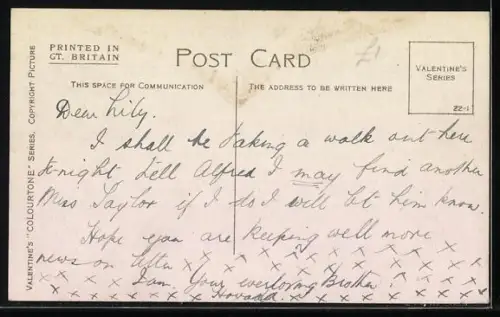 PRINTED IN
GT. BRITAIN
POST CARD
£1
THIS SPACE FOR COMMUNICATION
THE ADDRESS TO BE WRITTEN HERE
VALENTINE'S
SERIES
22-1
VALENTINE'S "COLOURTONE" SERIES. COPYRIGHT PICTURE
Dear Lily.
I shall be taking a walk out here
to-night tell Alfred I may find another
Miss Taylor if I do I will let him know.
Hope you are keeping well more
news on letter x x x x x x x
I am. Your everloving Brother
x x x x x x x x x x x x x x x